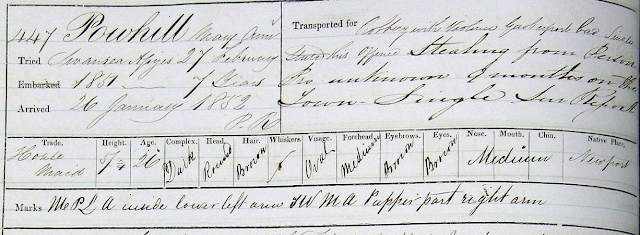 447 Powhill Mary Ann
Tried Swansea Assizes 27 February
Embarked 1851 — 7 Years
Arrived 26 January 1852
P. R
Transported for Robbery with Violence Gaol report Bad Single
Stated this Offence Stealing from Person
Pros unknown 9 months on the
Town. Single Sur Report
Trade. Height. Age. Complex. Head. Hair. Whiskers. Visage. Forehead. Eyebrows. Eyes. Nose. Mouth. Chin. Native Place.
House Maid 5/ 26 Dark Round Brown Oval Medium Brown Brown Medium Newport
Marks M P L A inside lower left arm J W M A P upper part right arm